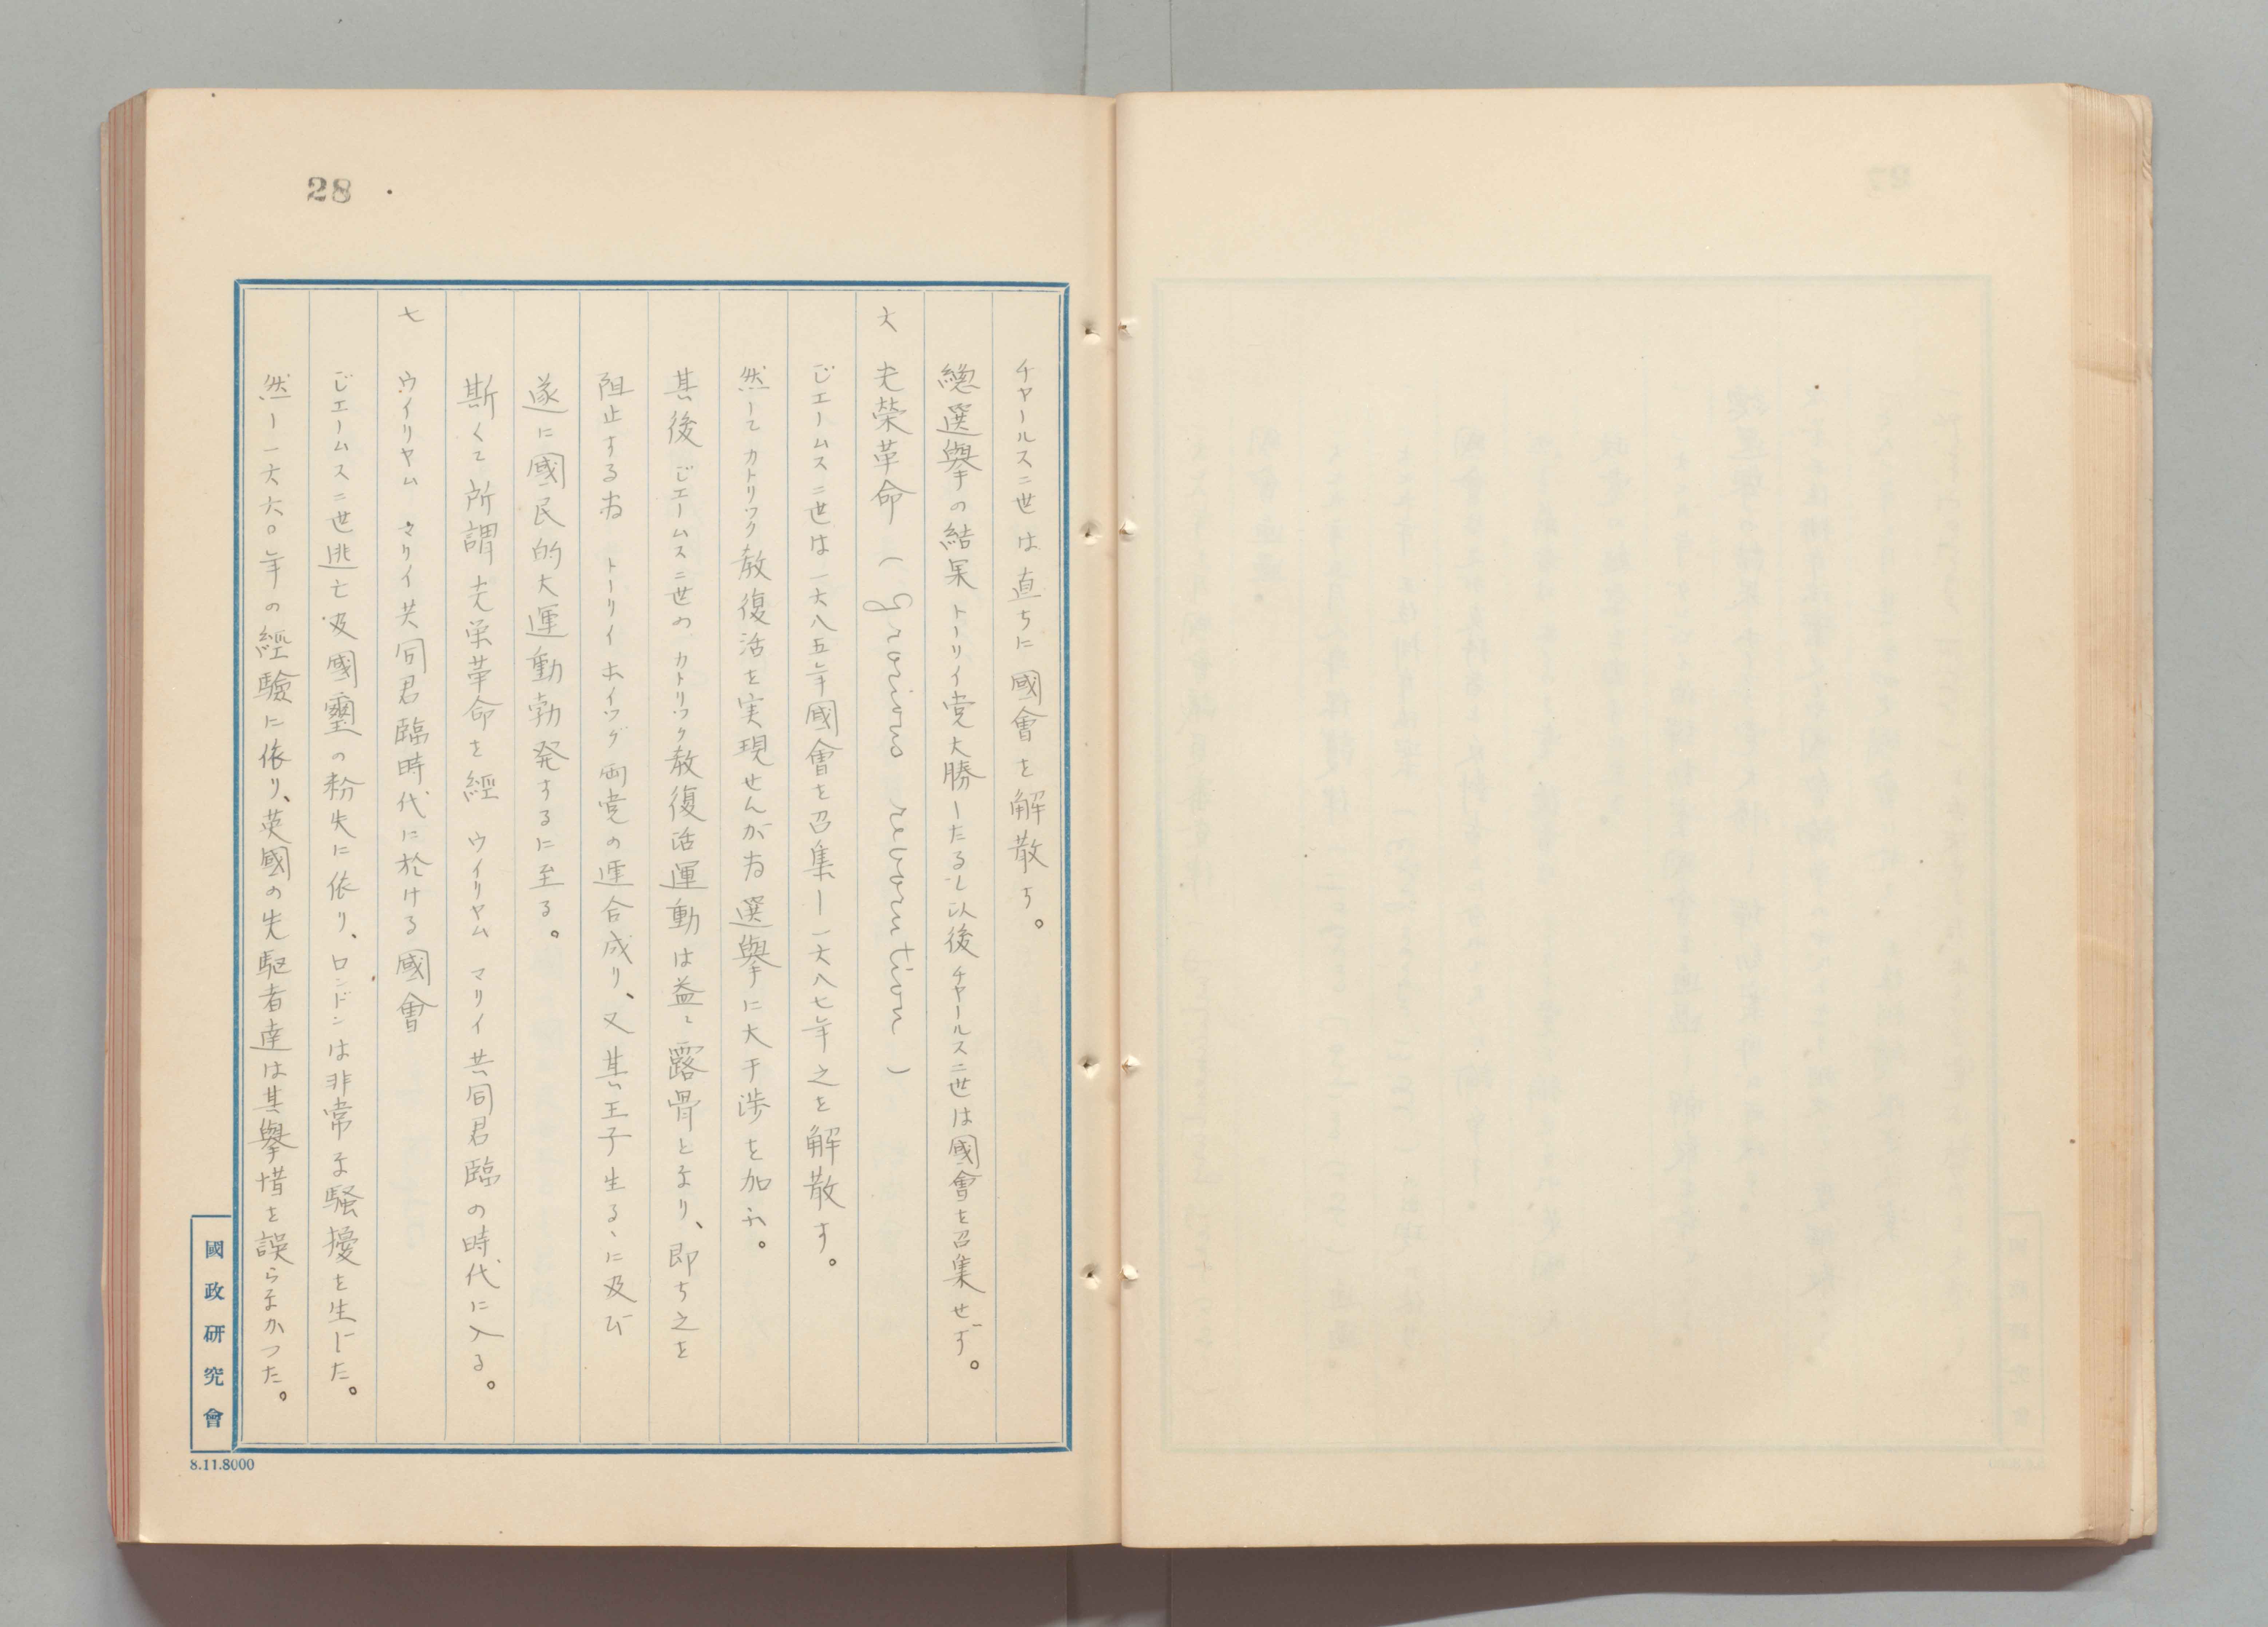 28
チャールス二世は直ちに國會を解散す。
總選擧の結果トーリイ党大勝したるも以後チャールス二世は國會を召集せず。
六 光榮革命(Grorious revorution)
ジェームス二世は一六八五年國會を召集し一六八七年之を解散す。
然してカトリック教復活を実現せんが為選擧に大干渉を加ふ。
其後ジェームス二世のカトリック教復活運動は益々露骨となり、即ち之を
阻止する為 トーリイホイッグ両党の連合成り、又其王子生るゝに及び
遂に國民的大運動勃発するに至る。
斯くて所謂光栄革命を經 ウイリヤム マリイ共同君臨の時代に入る。
七 ウイリヤム マリイ共同君臨時代に於ける國會
ジェームス二世逃亡及國璽の粉失に依り、ロンドンは非常な騒擾を生じた。
然し一六六〇年の經驗に依り、英國の先駆者達は其擧惜を誤らなかつた。
國政研究會
8.11.8000